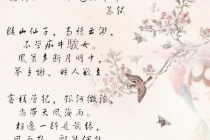 苏轼
缑山仙子,高情云渺,
不学痴牛騃女。
凤箫声断月明中,
举手谢、时人欲去。
客槎曾犯,银河微浪,
尚带天风海雨。
相逢一醉是前缘,